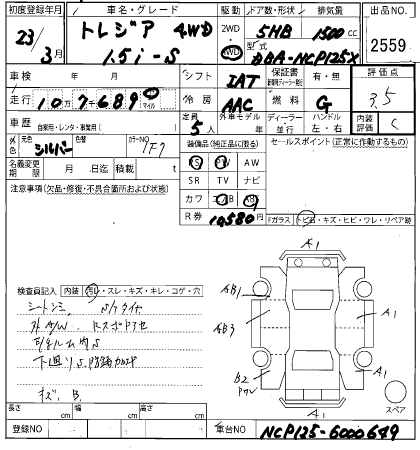 初度登録年月 車名・グレード 駆動 ドア数・形状 排気量 出品NO
23年 3月 トレジア 4WD 1.5i-S 2WD 4WD 5HB 1500cc 2559
型式 DBA-NCP125X
車検 年 月 シフト IAT 保証書 有・無 評価点 3.5
走行 10万7689 マイル 冷房 AAC 燃料 G
車歴 自家用・レンタ・事業用( ) 定員 5人 外車モデル年 ディーラー 並行 ハンドル 左・右 内装評価 C
外色 元色 シルバー 色替 カラーNO 1F7
名義変更期限 月 日迄 積載 t
装備品(純正品に限る) PS PW AW SR TV ナビ カワ エアB ABS
セールスポイント(正常に作動するもの)
R券 10,580円
注意事項(欠品・修復・不具合箇所および状態)
Fガラス トビ石・キズ・ヒビ・ワレ・リペア跡
検査員記入 内装 汚れ・スレ・キズ・キレ・コゲ・穴
シートシミ S/Wタイヤ
外A/W
下廻りS
キズ、B
A1
AB1
AB3
A1
B2
A1
A1
スペア
長さ cm 幅 cm 高さ cm
登録NO 車台NO NCP125-6000649